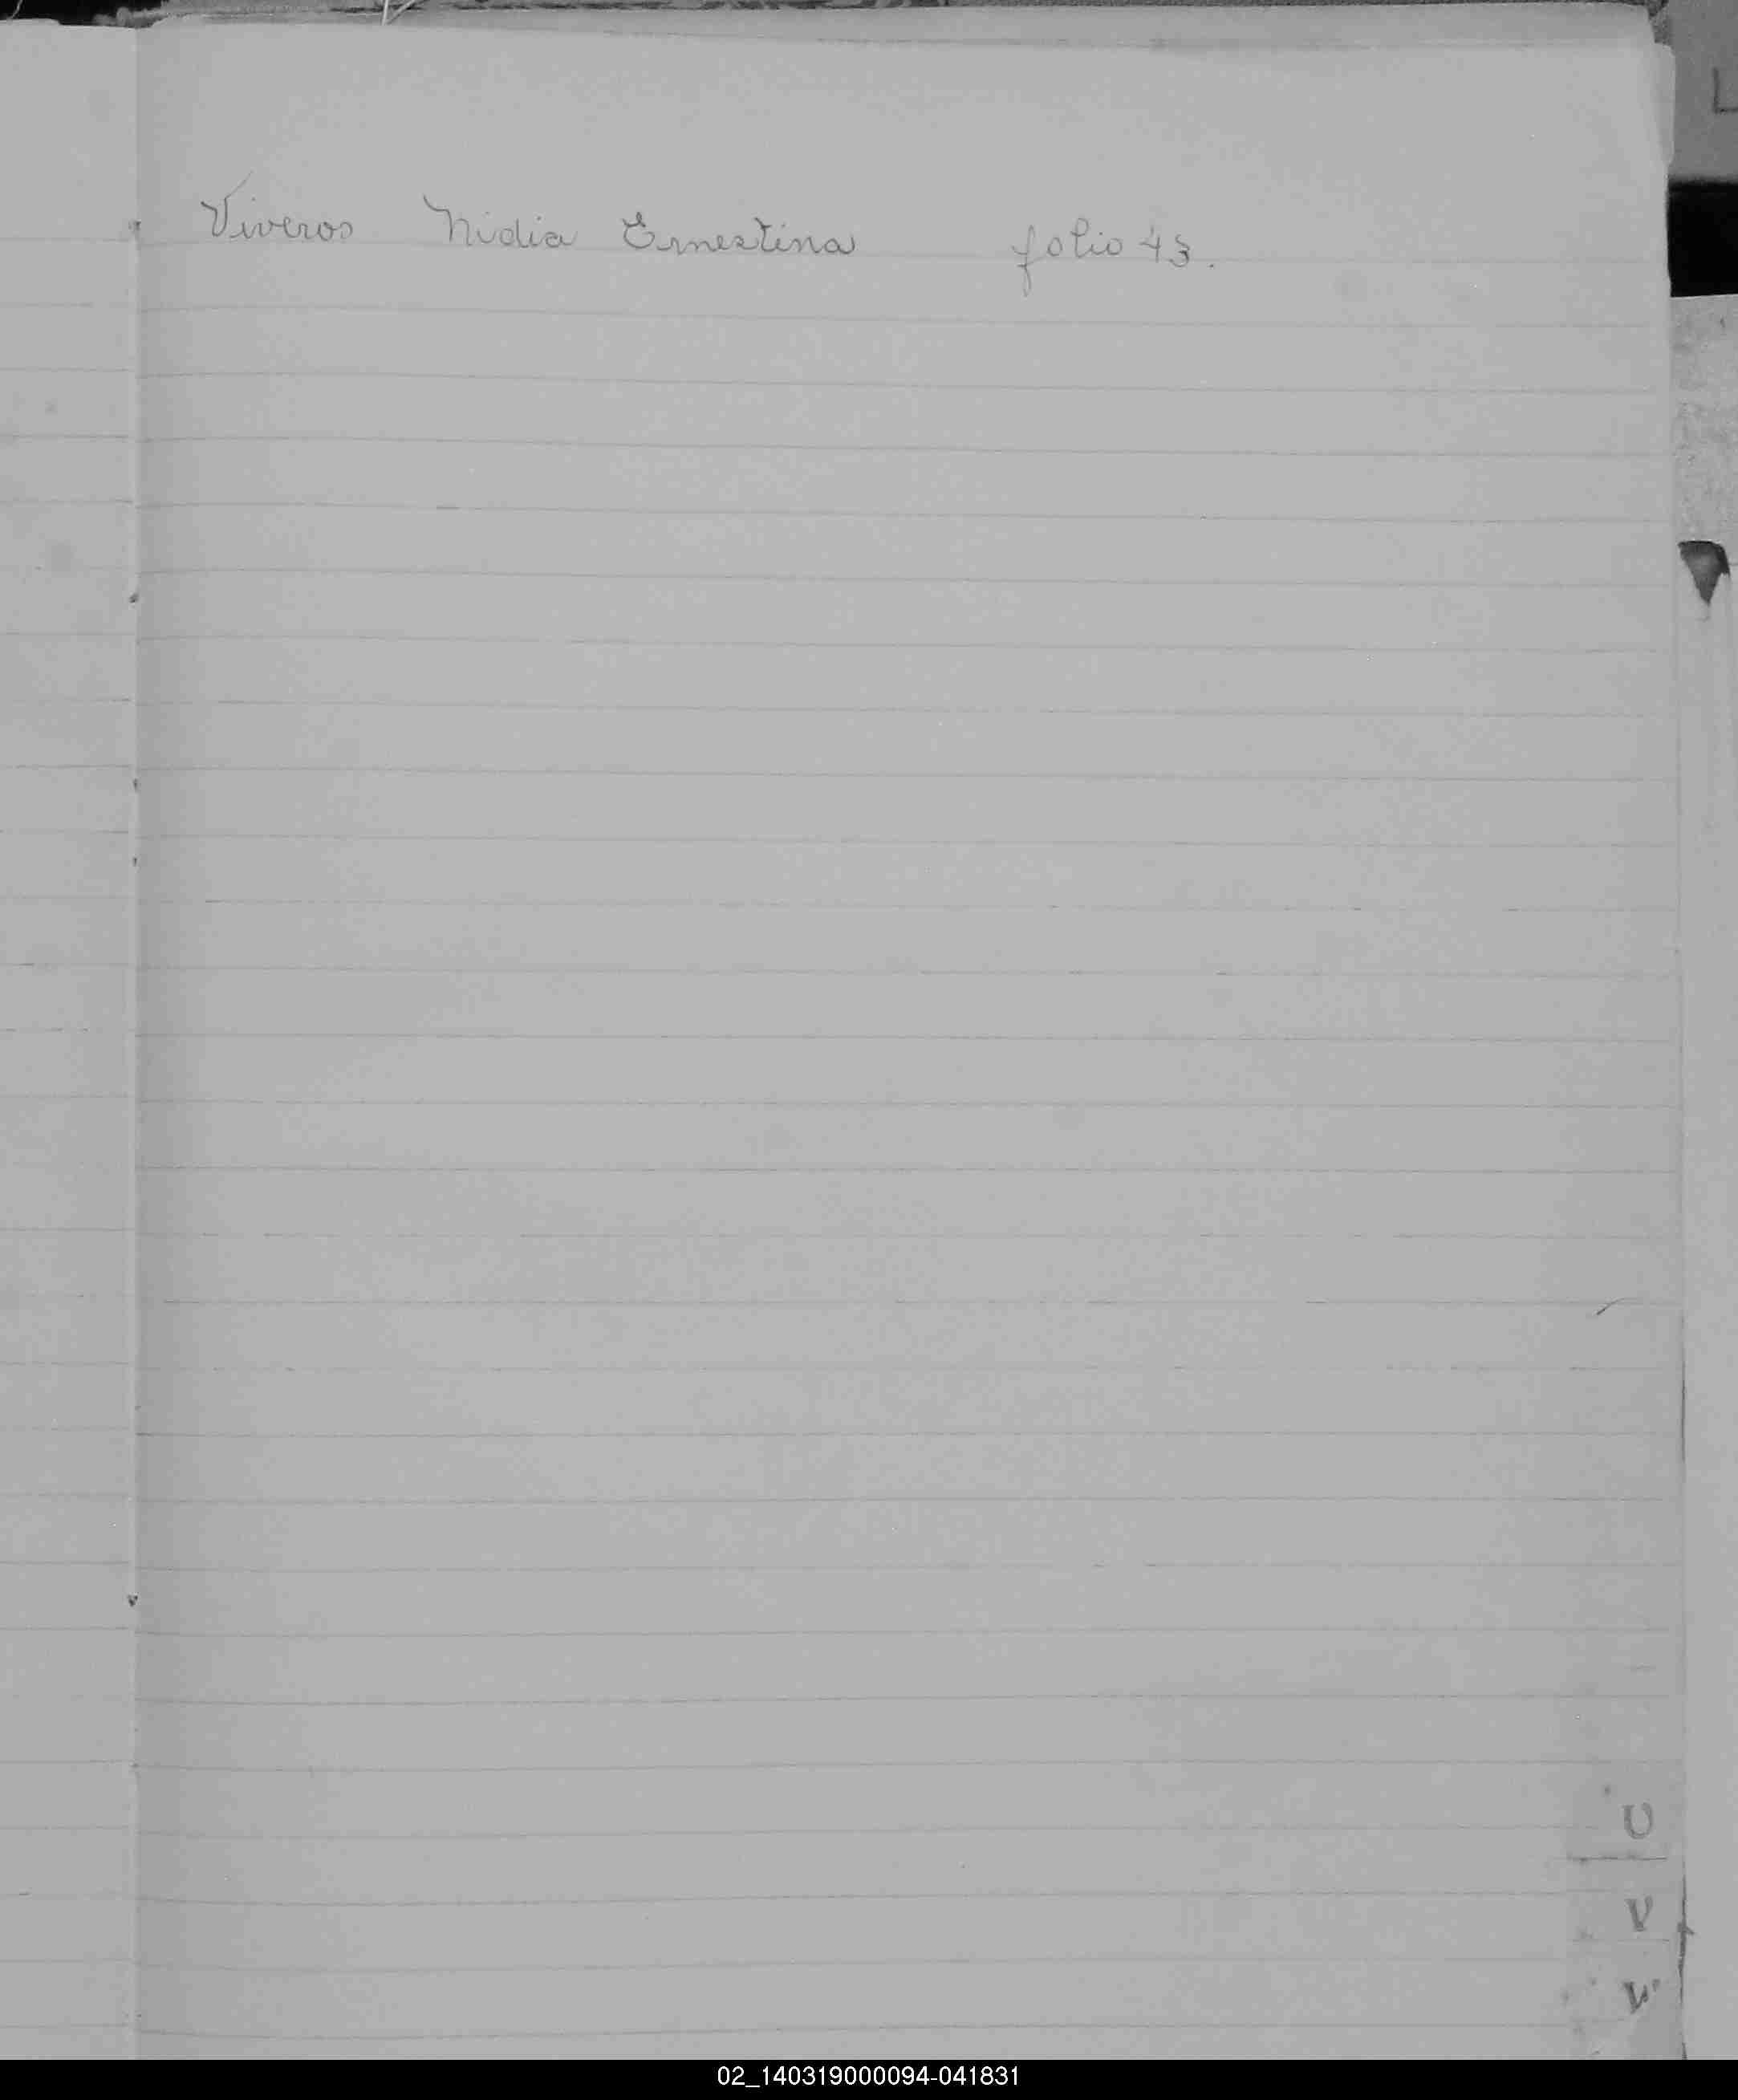 Viveros Nidia Ernestina folio 43.
U
V
W
02_140319000094-041831